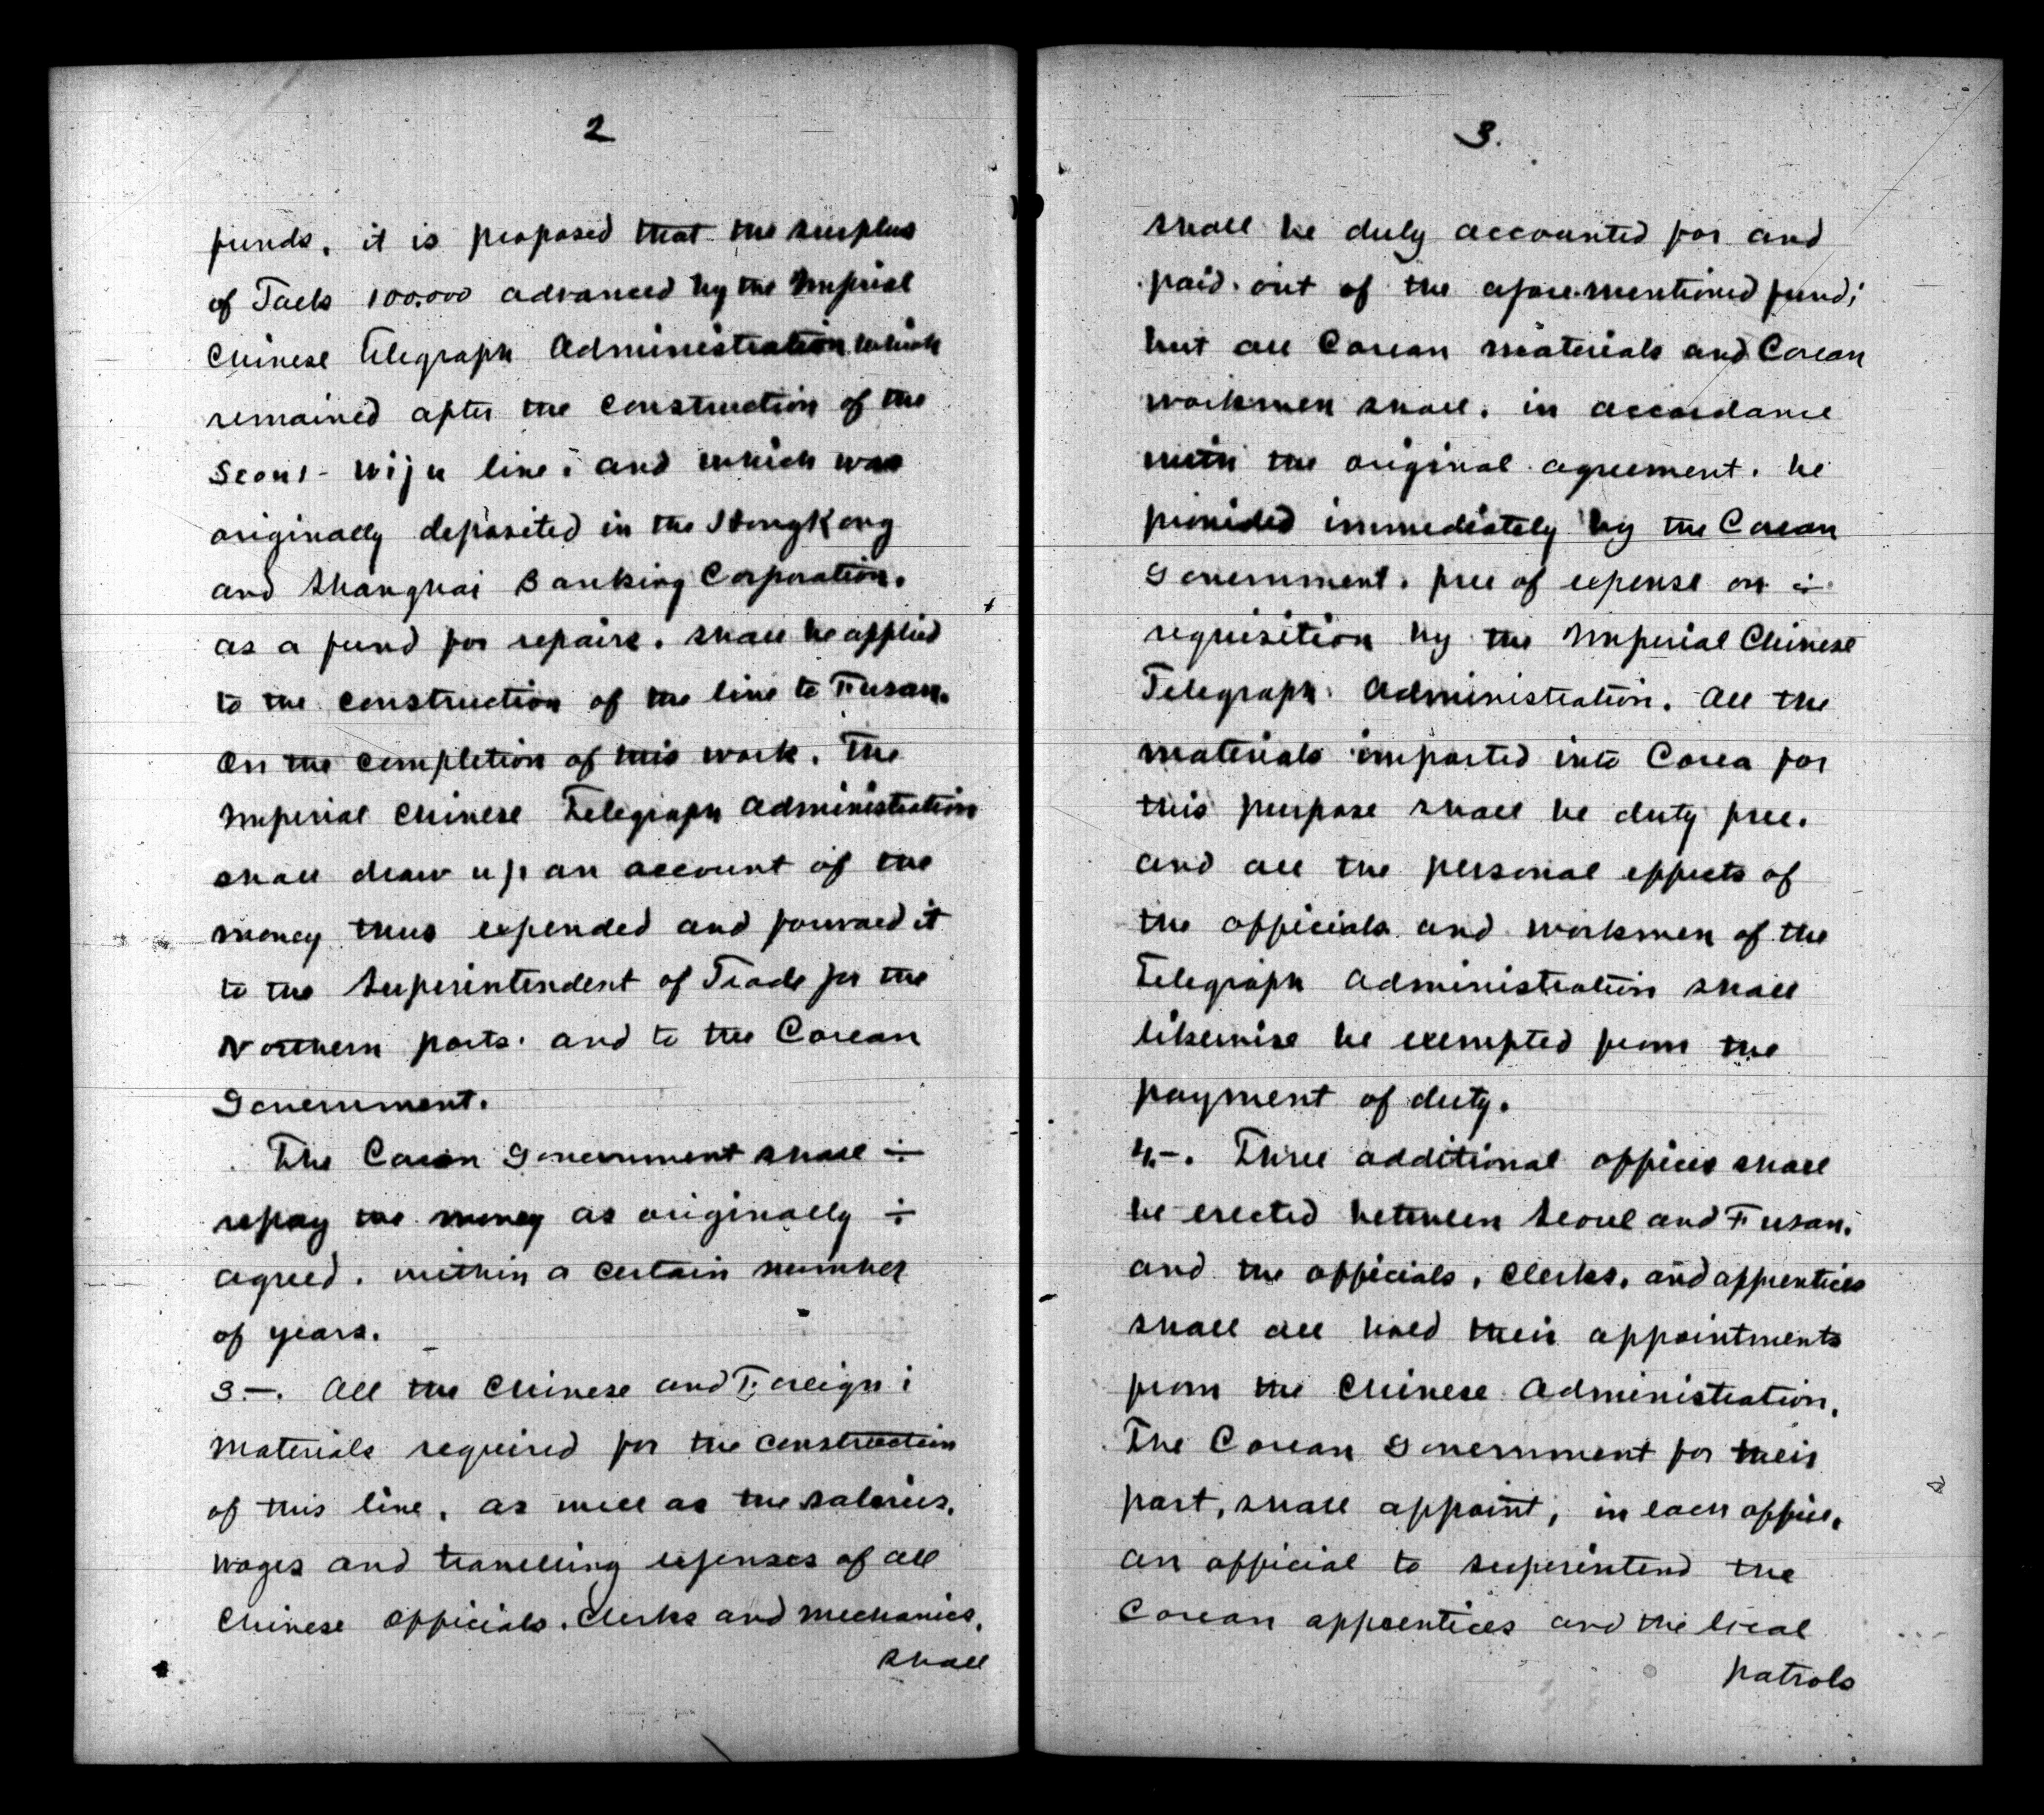 2
funds, it is proposed that the surplus
of Taels 100.000 advanced by the Imperial
Chinese Telegraph Administration which
remained after the construction of the
Seoul - Wiju line, and which was
originally deposited in the HongKong
and Shanghai Banking Corporation,
as a fund for repairs, shall be applied
to the construction of the line to Fusan.
On the completion of this work, the
Imperial Chinese Telegraph Administration
shall draw up an account of the
money thus expended and forward it
to the Superintendent of Trade for the
Northern ports, and to the Corean
Government.
The Corean Government shall ÷
repay the money as originally ÷
agreed, within a certain number
of years.
3.—. All the Chinese and Foreign :
materials required for the construction
of this line, as well as the salaries,
wages and travelling expenses of all
Chinese Officials, Clerks and mechanics,
shall
3.
shall be duly accounted for and
paid out of the afore.mentioned fund;
but all Corean materials and Corean
workmen shall, in accordance
with the original agreement, be
provided immediately by the Corean
Government, free of expense on ÷
requisition by the Imperial Chinese
Telegraph Administration. All the
materials imported into Corea for
this purpose shall be duty free,
and all the personal effects of
the officials and workmen of the
Telegraph Administration shall
likewise be exempted from the
payment of duty.
4.—. Three additional offices shall
be erected between Seoul and Fusan,
and the officials, clerks, and apprentices
shall all hold their appointments
from the Chinese Administration.
The Corean Government for their
part, shall appoint, in each office,
an official to superintend the
Corean apprentices and the local
patrols